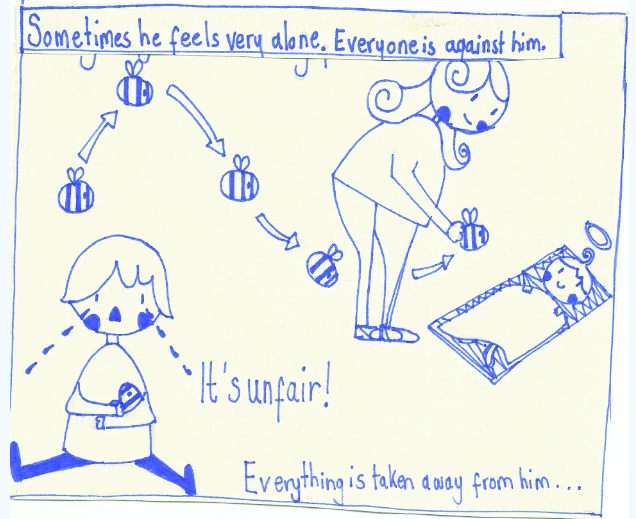 Sometimes he feels very alone. Everyone is against him.
It's unfair!
Everything is taken away from him...